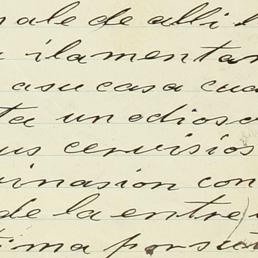 ale de alli l
ilamentar
asu casa cua
ta un odioso
us cervisios
inasion con
de la entre
tima por su